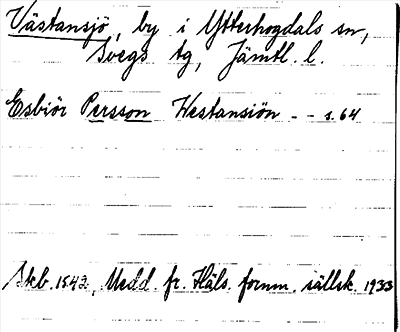 Västansjö, by i Ytterhogdals sn,
Svegs tg, Jämtl. l.
Esbiör Persson Westansiön - - s. 64
Skb. 1542, Medd. fr. Häls. fornm. sällsk. 1933